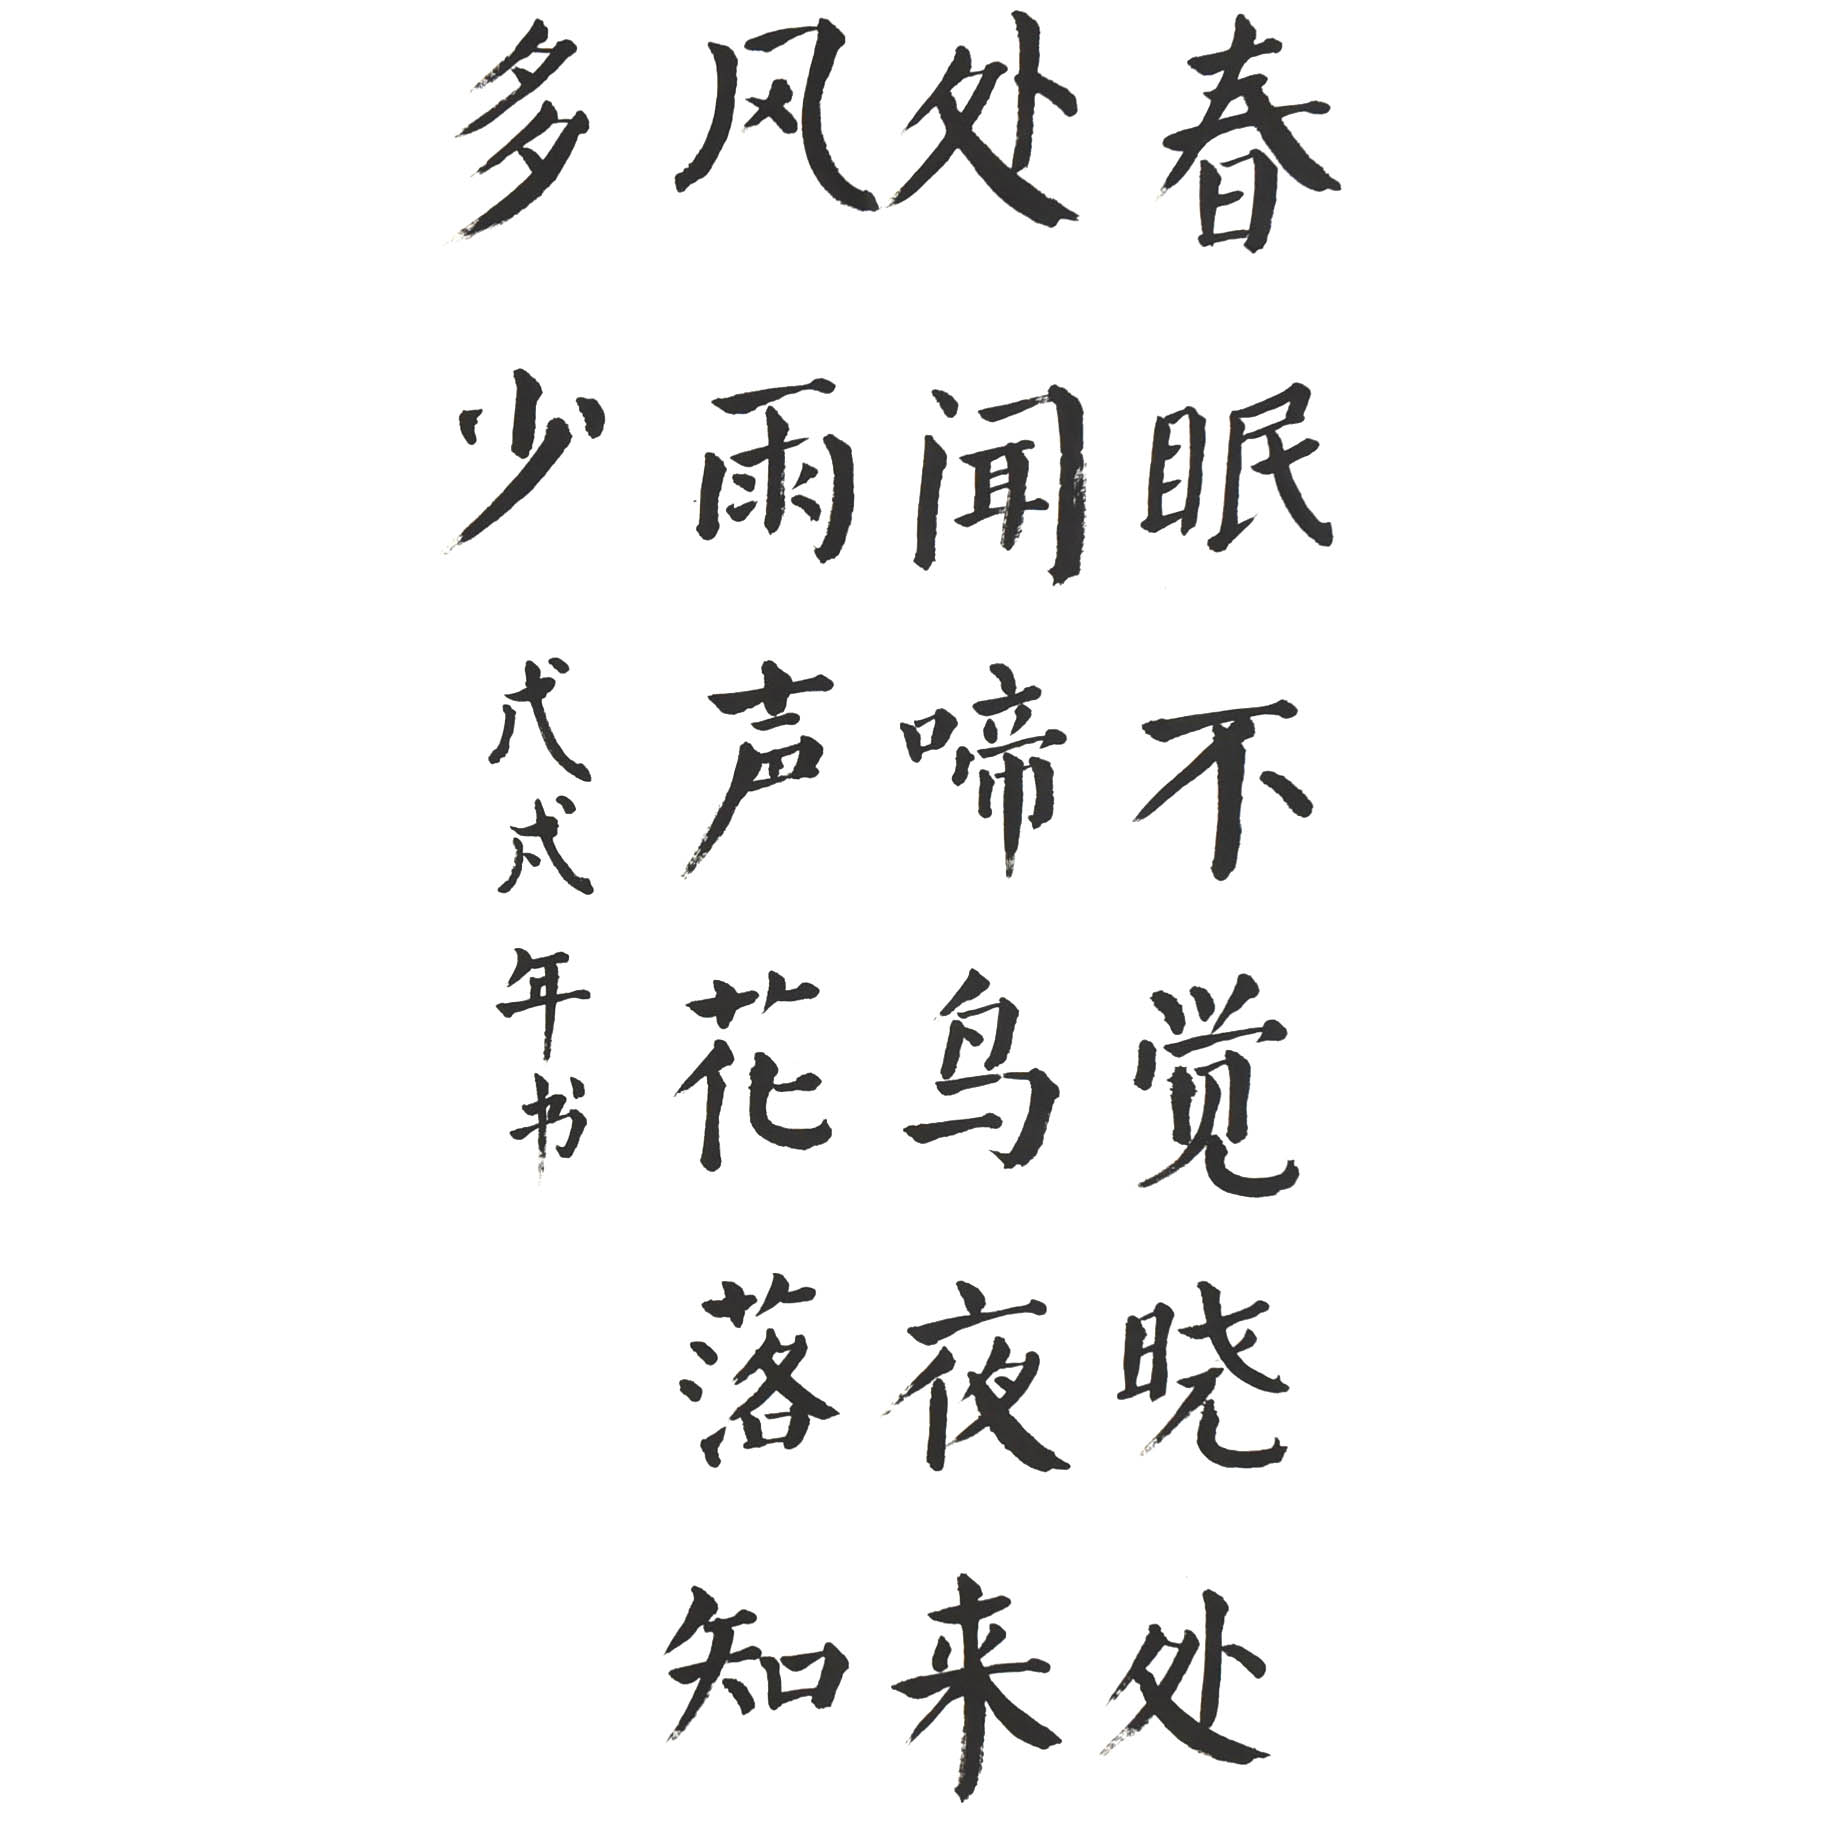 春眠不觉晓处
处闻啼鸟夜来
风雨声花落知
多少 戊戌年书